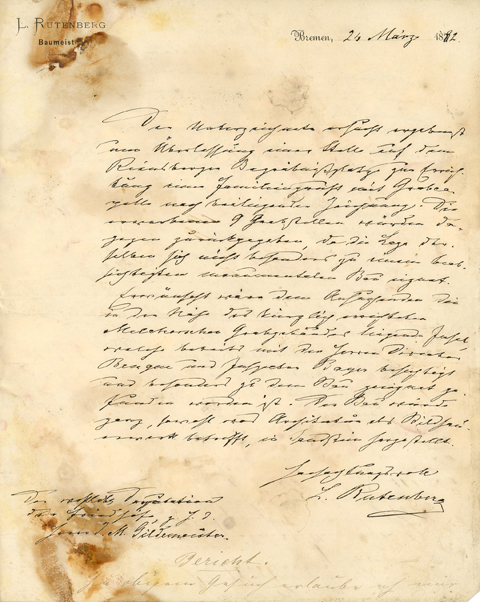 L. RUTENBERG
Baumeister
Bremen, 24 März 1882.
Der Unterzeichnete ersucht ergebenst
um Überlassung einer Stelle auf dem
Riensberger Begräbnißplatz zur Errich-
tung eines Familiengrabes mit Grabca-
pelle nach beiliegender Zeichnung. Die
erworbenen 9 Grabstellen würden da-
gegen zurückgegeben, da die Lage der-
selben sich nicht besonders zu einem beab-
sichtigten monumentalen Bau eignet.
Erwünscht wäre dem Ansuchenden die
in der Nähe des kürzlich errichteten
Melchersschen Grabgebäudes liegende Insel
welche bereits mit den Herren Director
Benque und Inspector Bayer besichtigt
und besonders zu dem Bau geeignet ge-
funden worden ist. Der Bau würde
ganz, sowohl was Architektur als Bildhau-
erwerk betrifft, in Sandstein hergestellt.
Hochachtungsvoll
L. Rutenberg
Der Deputation
der Friedhöfe, z. H.
Herrn Gildemeister.
Bericht.
Gesuch erlaube ich mir